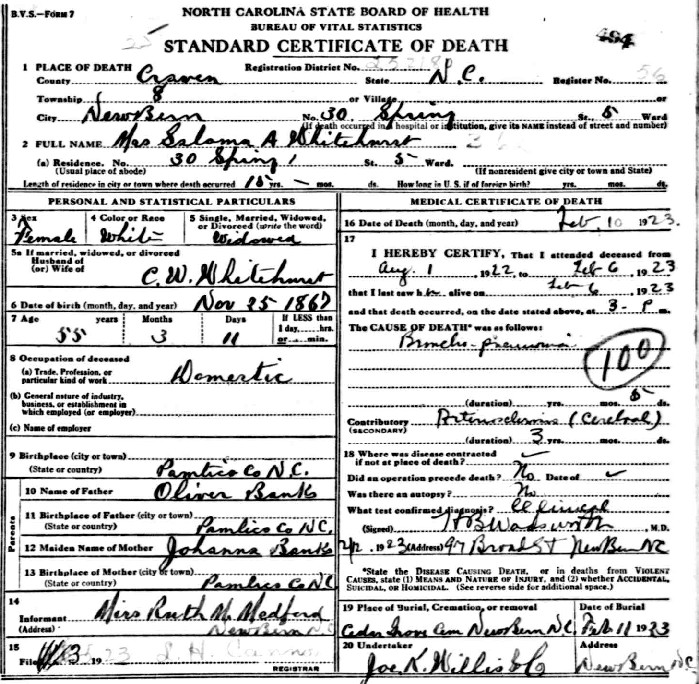 B.V.S.—FORM 7
NORTH CAROLINA STATE BOARD OF HEALTH
BUREAU OF VITAL STATISTICS
STANDARD CERTIFICATE OF DEATH
1 PLACE OF DEATH
Registration District No.
County Craven State N.C. Register No. 56
Township 8 or Village or
City New Bern No. 30 Spring St., 5 Ward
(If death occurred in a hospital or institution, give its NAME instead of street and number)
2 FULL NAME Mrs Saloma A Whitehurst
(a) Residence. No. 30 Spring St. 5 Ward.
(Usual place of abode) (If nonresident give city or town and State)
Length of residence in city or town where death occurred 15 yrs. – mos. ds. How long in U. S. if of foreign birth? yrs. mos. ds.
PERSONAL AND STATISTICAL PARTICULARS
3 Sex 4 Color or Race 5 Single, Married, Widowed, or Divorced (write the word)
Female White Widowed
5a If married, widowed, or divorced
Husband of
(or) Wife of C. W. Whitehurst
6 Date of birth (month, day, and year) Nov 25 1867
7 Age years Months Days If LESS than 1 day,....hrs. or....min.
55 3 11
8 Occupation of deceased
(a) Trade, Profession, or particular kind of work Domestic
(b) General nature of industry, business, or establishment in which employed (or employer)
(c) Name of employer
9 Birthplace (city or town)
(State or country) Pamlico Co N.C.
Parents
10 Name of Father Oliver Banks
11 Birthplace of Father (city or town)
(State or country) Pamlico Co NC.
12 Maiden Name of Mother Johanna Banks
13 Birthplace of Mother (city or town)
(State or country) Pamlico Co NC
14
Informant Miss Ruth M. Medford
(Address) New Bern N.C.
15
File 3 19 23
REGISTRAR
MEDICAL CERTIFICATE OF DEATH
16 Date of Death (month, day, and year) Feb 10 1923.
17
I HEREBY CERTIFY, That I attended deceased from
Aug 1, 1922, to Feb 6, 1923
that I last saw h alive on Feb 6, 1923
and that death occurred, on the date stated above, at 3- P m.
The CAUSE OF DEATH* was as follows:
Broncho-pneumonia
100
(duration) yrs. mos. 5 ds.
Contributory Arteriosclerosis (Cerebral)
(SECONDARY)
(duration) 3 yrs. mos. ds.
18 Where was disease contracted
if not at place of death?
Did an operation precede death? No Date of
Was there an autopsy? No
What test confirmed diagnosis? Clinical
(Signed) H B Wadsworth, M.D.
1923 (Address) 97 Broad St New Bern NC
*State the DISEASE CAUSING DEATH, or in deaths from VIOLENT CAUSES, state (1) MEANS AND NATURE OF INJURY, and (2) whether ACCIDENTAL, SUICIDAL, or HOMICIDAL. (See reverse side for additional space.)
19 Place of Burial, Cremation, or removal Date of Burial
Cedar Grove Cem New Bern NC. Feb 11 1923
20 Undertaker Address
Joe K. Willis & Co New Bern N.C